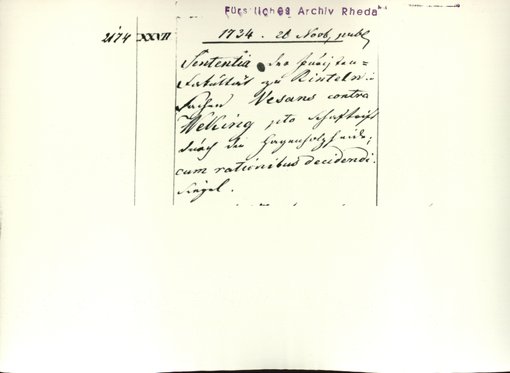 Fürstliches Archiv Rheda
2174 XXVII 1734. 28 Novb. publ.
Sententia der Juristen=
Facultät zu Rinteln in
Sachen Vesans contra
Welking pto Schaftrift
durch die Hagenholzheide,
cum rationibus decidendi.
Siegel.